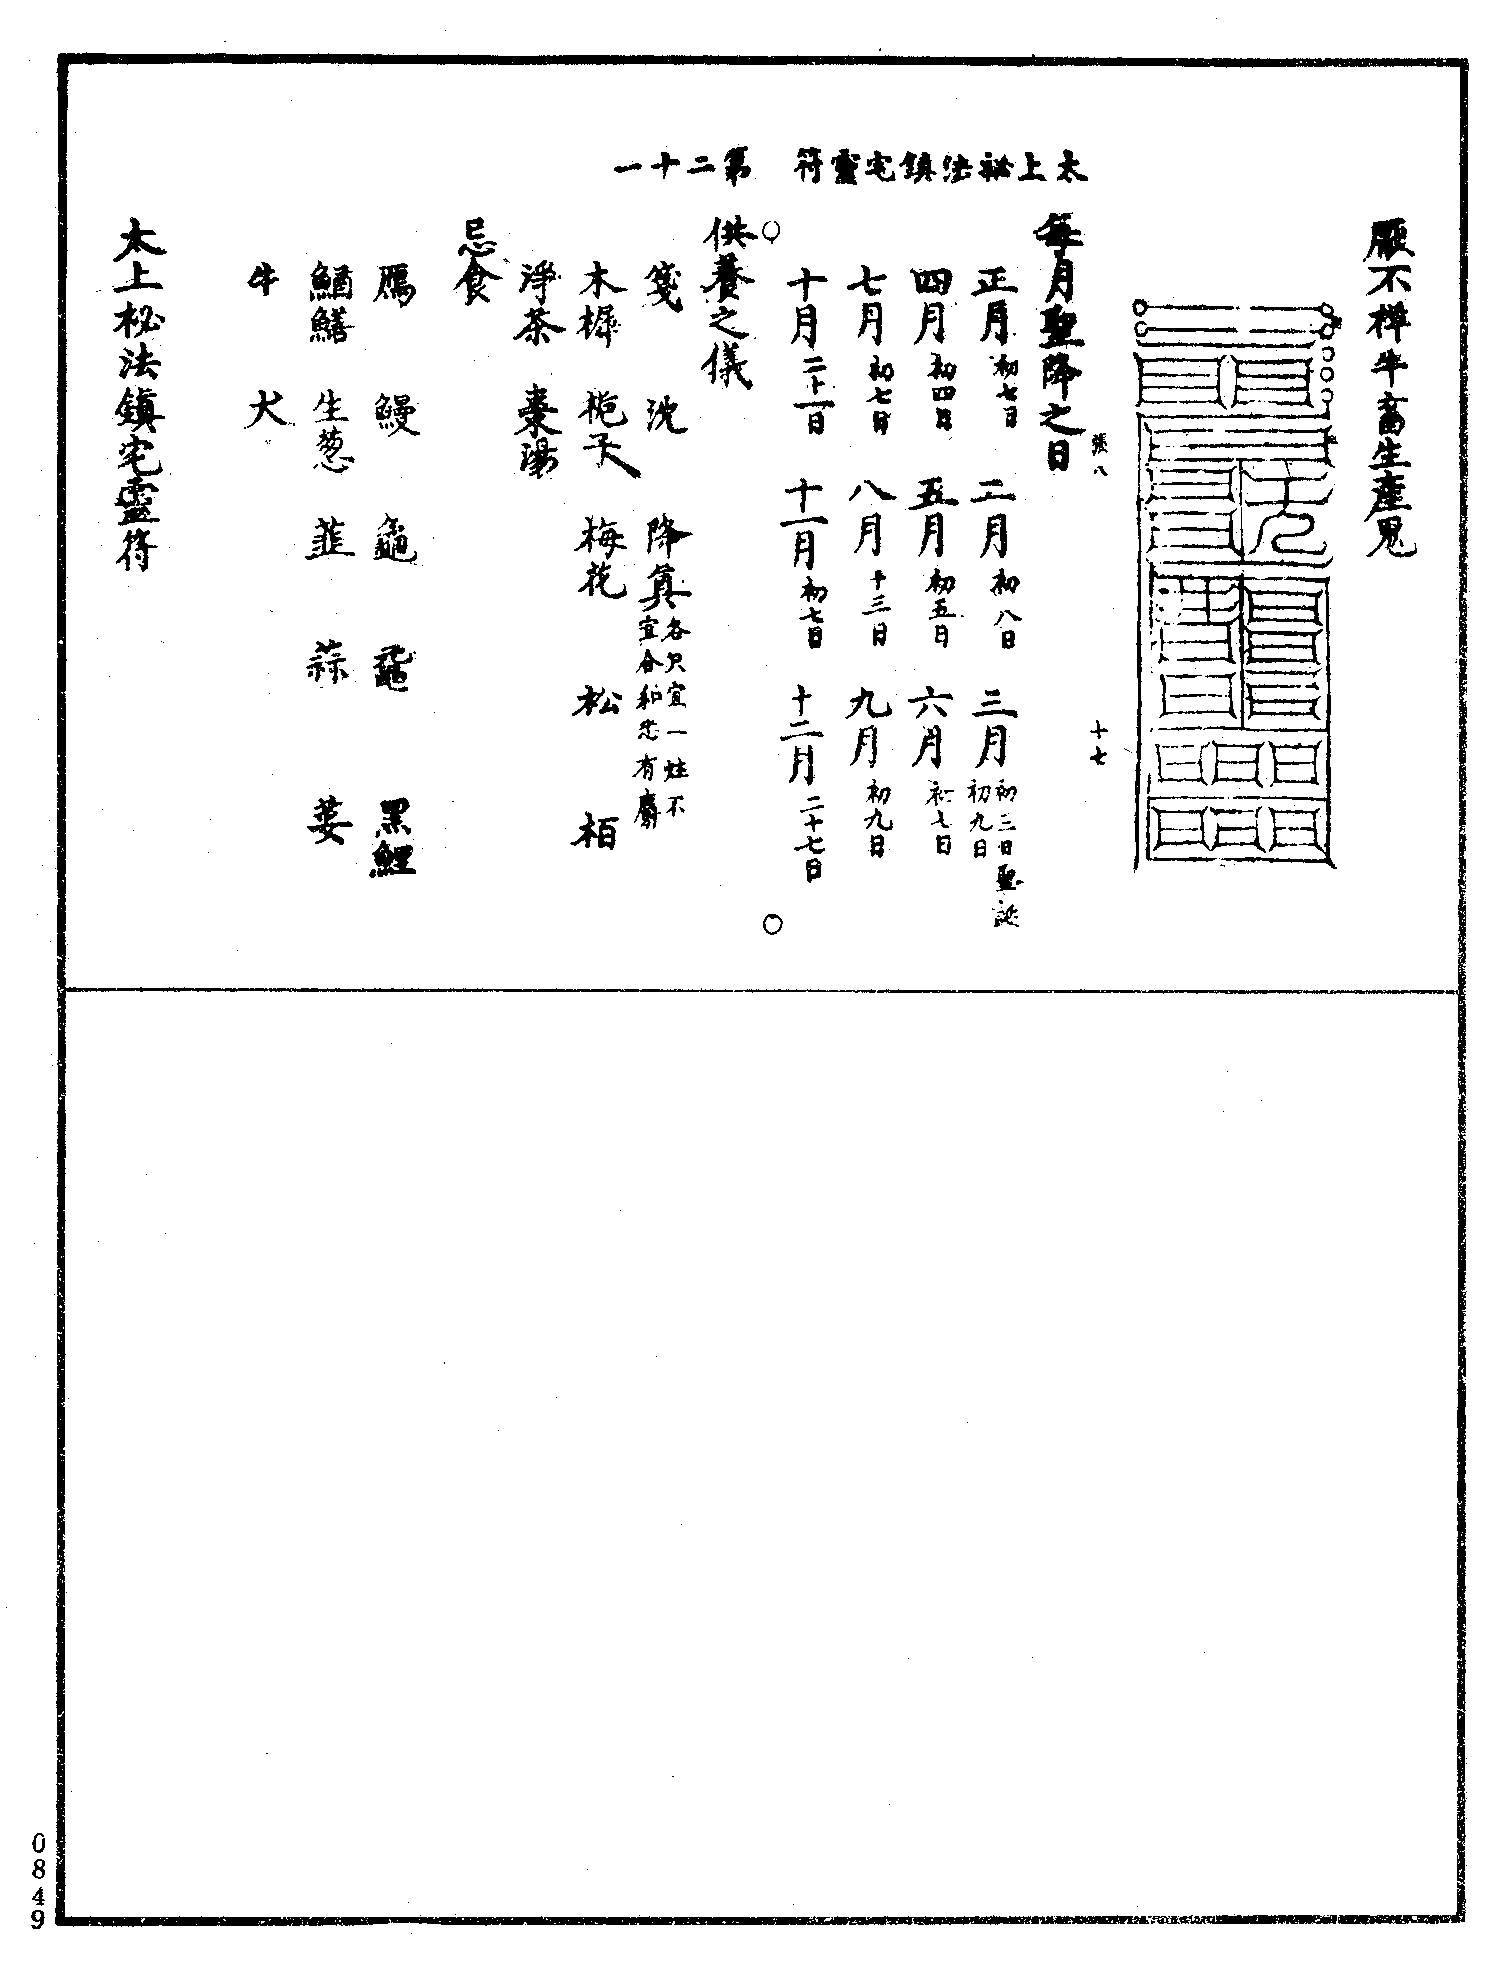 太上祕法鎮宅靈符　第二十一
厭不禪牛畜生產鬼
張八　十七
每月聖降之日
正月初七日　二月初八日　三月初三日聖誕初九日
四月初四日　五月初五日　六月初七日
七月初七日　八月十三日　九月初九日
十月二十一日　十一月初七日　十二月二十七日
供養之儀
箋　沈　降真各只宜一炷不宜合和恐有麝
木樨　梔子　梅花　松　栢
淨茶　棗湯
忌食
鴈　鰻　龜　鼈　黑鯉
鰌鱔　生葱　韮　蒜　荽
牛　犬
太上秘法鎮宅靈符
0849